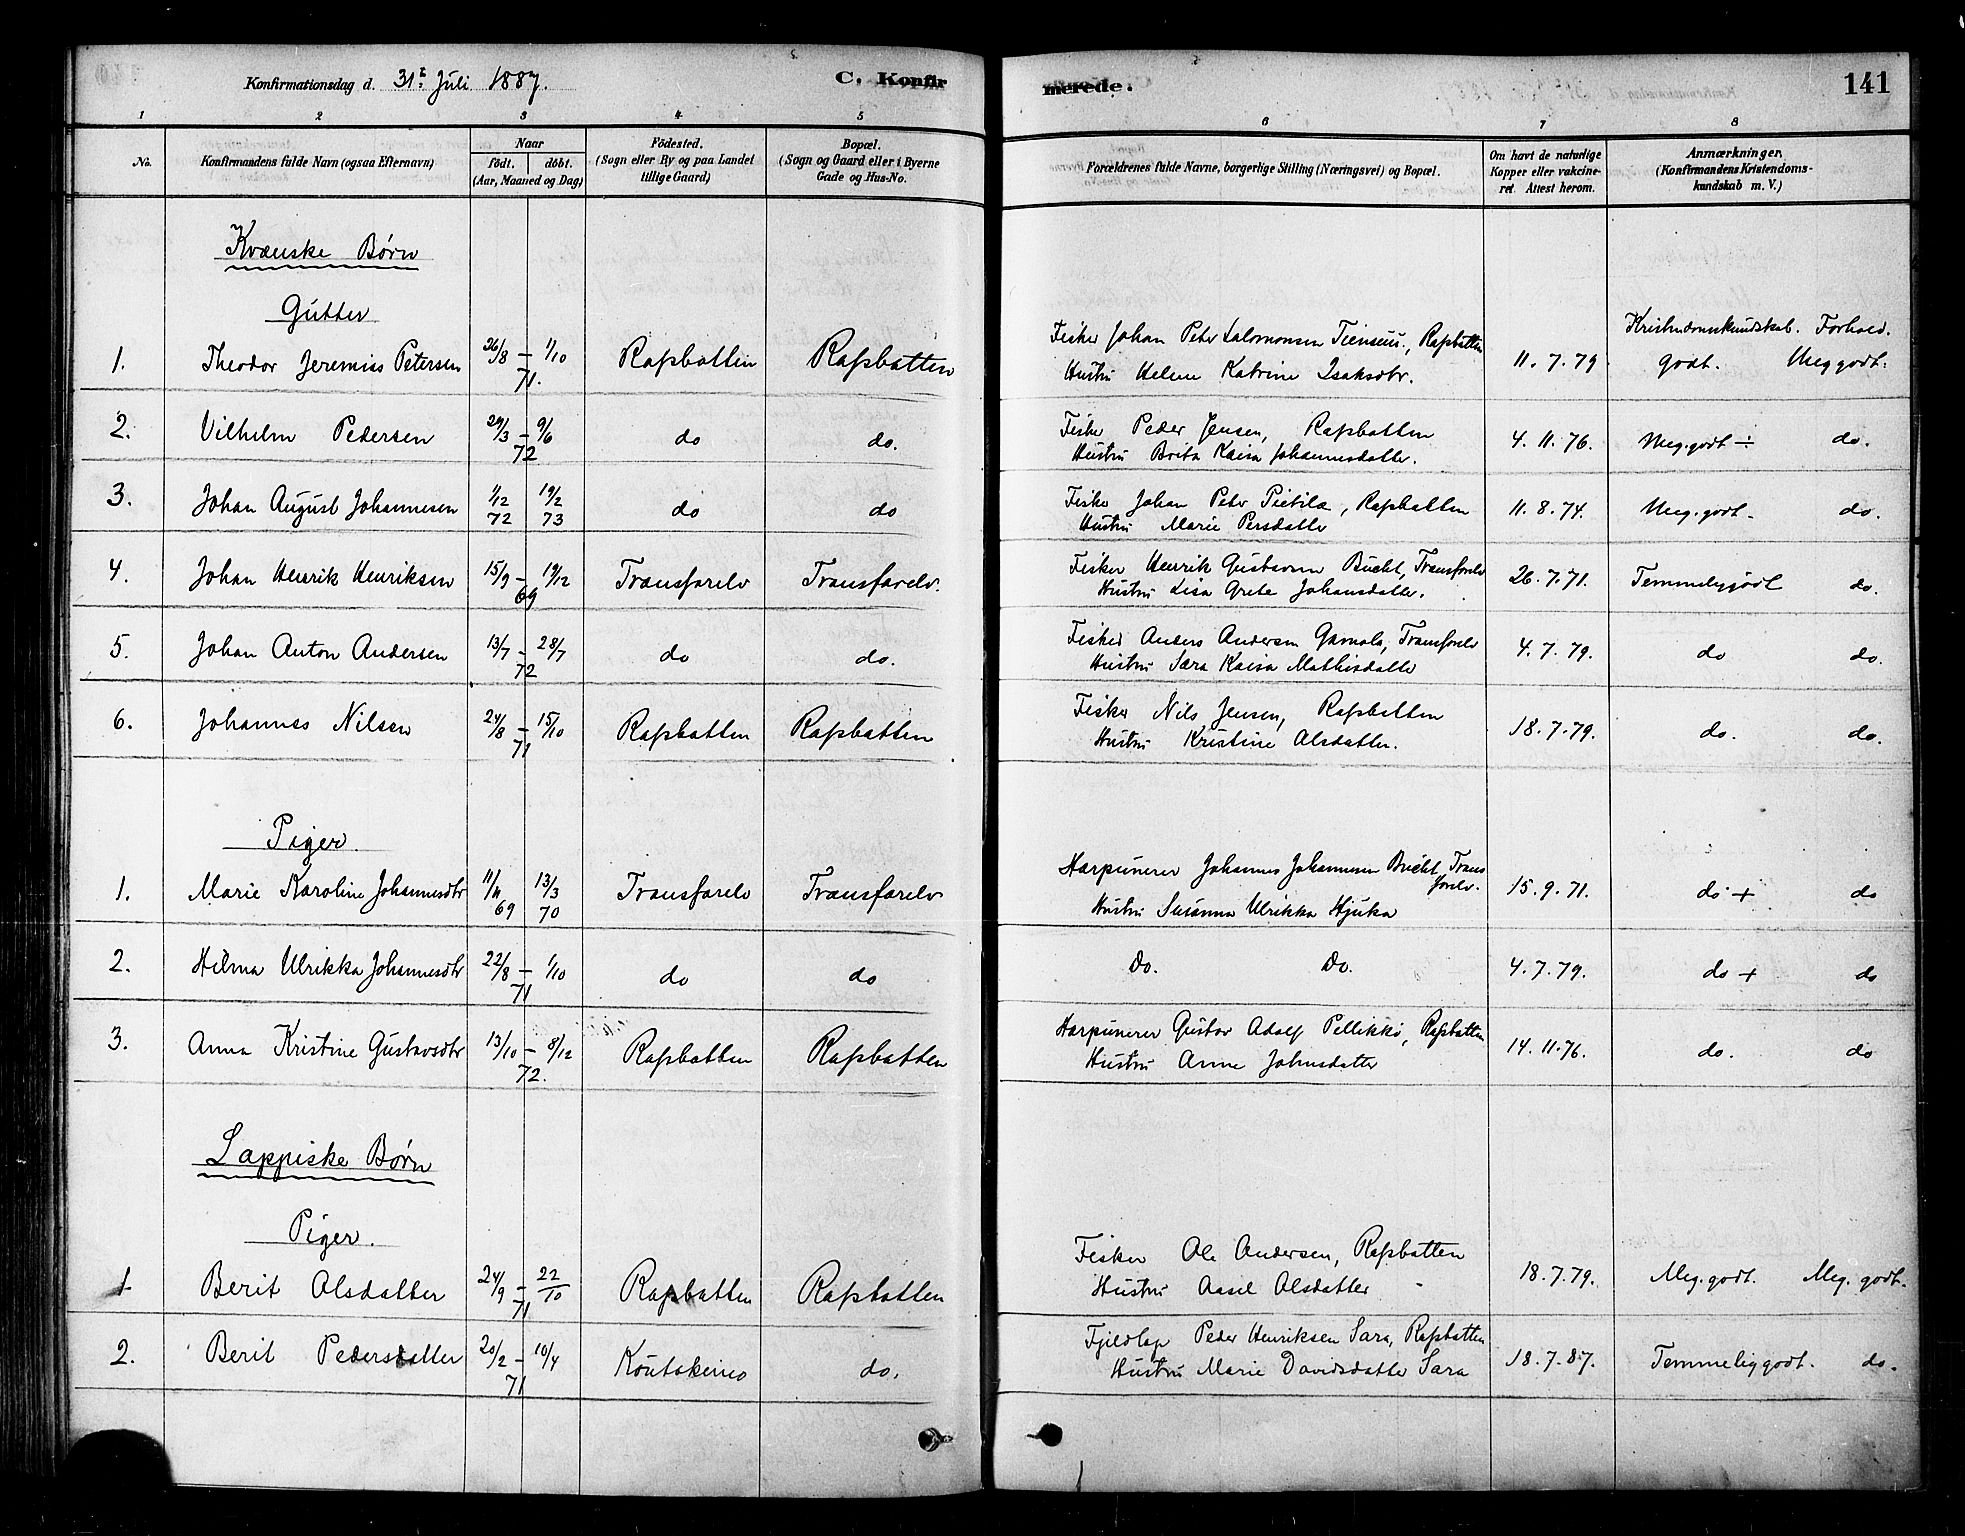 Konfirmationsdag d. 31te Juli 1887.
C. Konfir
merede.
141
1 2 3 4 5 6 7 8
No.
Konfirmandens fulde Navn (ogsaa Efternavn)
Naar
födt. döbt.
(Aar, Maaned og Dag)
Födested.
(Sogn eller By og paa Landet
tillige Gaard)
Bopæl.
(Sogn og Gaard eller i Byerne
Gade og Hus-No.
Forældrenes fulde Navne, borgerlige Stilling (Næringsvei) og Bopæl.
Om havt de naturlige
Kopper eller vakcine-
ret. Attest herom.
Anmærkninger.
(Konfirmandens Kristendoms-
kundskab m. V.)
Kvænske Børn
Gutter
Kristendomskundskab. Forhold.
1. Theodor Jeremias Petersen 26/8 – 1/10 71. Rafsbotten Rafsbotten
Fisker Johan Peter Salomonsen, Rafsbotten
Hustru Helene Katrine Isaksdtr. 11.7.79 godt. Meg godt.
2. Vilhelm Pedersen 29/3 – 9/6 72 do do.
Fisker Peder Jensen, Rafsbotten
Hustru Brita Kaisa Johannesdatter. 4.11.76. Meg. godt ÷ do.
3. Johan August Johannesen 1/12 72 19/2 73 do do
Fisker Johan Peter Pietilæ, Rafsbotten
Hustru Marie Persdatter 11.8.74. Meg. godt – do.
4. Johan Henrik Henriksen 15/9 – 19/12 69 Transfarelv Transfarelv.
Fisker Henrik Gustavsen Bucht, Transfarelv
Hustru Lisa Grete Johansdatter. 26.7.71. Temmelig godt do.
5. Johan Anton Andersen 13/7 – 28/7 72 do do.
Fisker Anders Andersen Gamola, Transfarelv
Hustru Sara Kaisa Mathisdatter 4.7.79. do do.
6. Johannes Nilsen 24/8 – 15/10 71 Rafsbotten Rafsbotten
Fisker Nils Jensen, Rafsbotten
Hustru Kristine Olsdatter. 18.7.79. do. do.
Piger.
1. Marie Karoline Johannesdtr 11/11 69 13/3 70 Transfarelv Transfarelv
Harpunerer Johannes Johannesen Bucht, Trans
farelv.
Hustru Susanna Ulrikka Hjuka 15.9.71. do + do
2. Hilma Ulrikka Johannesdtr 22/8 – 1/10 71 do do
Do. Do. 4.7.79. do + do
3. Anna Kristine Gustavsdtr 13/10 – 8/12 72. Rafsbotten Rafsbotten
Harpunerer Gustav Adolf Pellikko, Rafsbotten
Hustru Anne Johnsdatter 14.11.76. do. do
Lappiske Børn
Piger.
1 Berit Olsdatter 24/9 – 22/10 71 Rafsbotten Rafsbotten
Fisker Ole Andersen, Rafsbotten
Hustru Aasel Olsdatter 18.7.79. Meg. godt. Meg. godt.
2. Berit Pedersdatter 20/2 – 10/4 71 Koutokeino do.
Fjeldlap Peder Henriksen Sara, Rafsbotten
Hustru Marie Davidsdatter Sara 18.7.87. Temmelig godt. do.